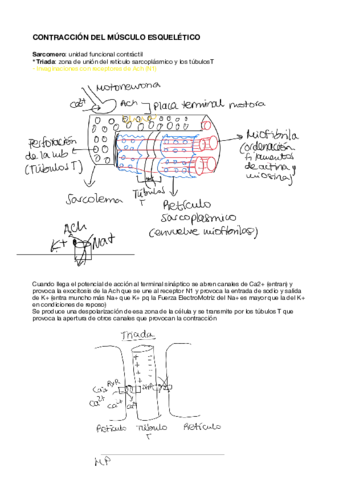 CONTRACCIÓN DEL MÚSCULO ESQUELÉTICO
Sarcomero: unidad funcional contráctil
* Triada: zona de unión del retículo sarcoplásmico y los túbulosT
Motoneurona
Ca2+
Ach
Placa terminal motora
Perforación
de la mb
(Túbulos T)
Miofibrila
(ordenación
filamentos
de actina y
miosina)
Sarcolema
Túbulos
T
Retículo
Sarcoplásmico
(envuelve miofibrilas)
Ach
K+
Na+
Cuando llega el potencial de acción al terminal sináptico se abren canales de Ca2+ (entran) y
provoca la exocitosis de la Ach que se une al receptor N1 y provoca la entrada de sodio y salida
de K+ (entra muncho más Na+ que K+ pq la Fuerza ElectroMotriz del Na+ es mayor que la del K+
en condiciones de reposo)
Se produce una despolarización de esa zona de la célula y se transmite por los túbulos T que
provoca la apertura de otros canales que provocan la contracción
Triada
RyR
Ca2+
Ca2+
Retículo
Túbulo
T
Retículo